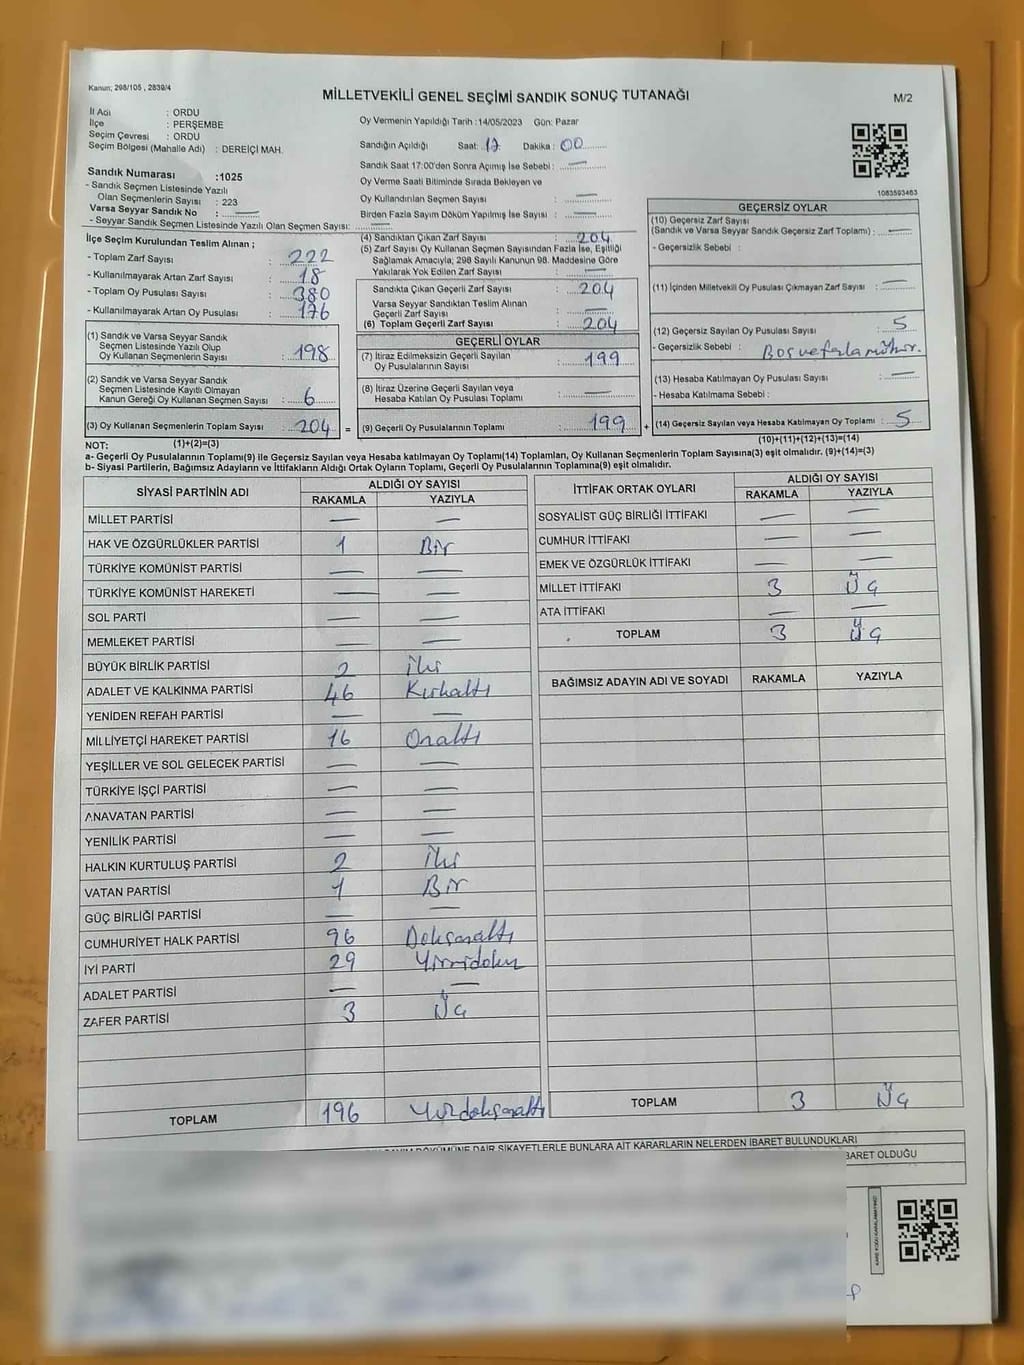 Kanun; 298/105 , 2839/4
MİLLETVEKİLİ GENEL SEÇİMİ SANDIK SONUÇ TUTANAĞI
M/2
İl Adı : ORDU
İlçe : PERŞEMBE
Seçim Çevresi : ORDU
Seçim Bölgesi (Mahalle Adı) : DEREİÇİ MAH.
Sandık Numarası :1025
- Sandık Seçmen Listesinde Yazılı
Olan Seçmenlerin Sayısı : 223
Varsa Seyyar Sandık No : —
- Seyyar Sandık Seçmen Listesinde Yazılı Olan Seçmen Sayısı:
Oy Vermenin Yapıldığı Tarih :14/05/2023 Gün: Pazar
Sandığın Açıldığı Saat: 17 Dakika: 00
Sandık Saat 17:00'den Sonra Açımış İse Sebebi : —
Oy Verme Saati Bitiminde Sırada Bekleyen ve
Oy Kullandırılan Seçmen Sayısı : —
Birden Fazla Sayım Döküm Yapılmış İse Sayısı : —
1083593463
İlçe Seçim Kurulundan Teslim Alınan ;
- Toplam Zarf Sayısı : 222
- Kullanılmayarak Artan Zarf Sayısı : 18
- Toplam Oy Pusulası Sayısı : 380
- Kullanılmayarak Artan Oy Pusulası : 176
(1) Sandık ve Varsa Seyyar Sandık
Seçmen Listesinde Yazılı Olup
Oy Kullanan Seçmenlerin Sayısı : 198
(2) Sandık ve Varsa Seyyar Sandık
Seçmen Listesinde Kayıtlı Olmayan
Kanun Gereği Oy Kullanan Seçmen Sayısı : 6
(3) Oy Kullanan Seçmenlerin Toplam Sayısı : 204 =
(4) Sandıktan Çıkan Zarf Sayısı : 204
(5) Zarf Sayısı Oy Kullanan Seçmen Sayısından Fazla İse, Eşitliği
Sağlamak Amacıyla; 298 Sayılı Kanunun 98. Maddesine Göre
Yakılarak Yok Edilen Zarf Sayısı : —
Sandıkta Çıkan Geçerli Zarf Sayısı : 204
Varsa Seyyar Sandıktan Teslim Alınan
Geçerli Zarf Sayısı : —
(6) Toplam Geçerli Zarf Sayısı : 204
GEÇERLİ OYLAR
(7) İtiraz Edilmeksizin Geçerli Sayılan
Oy Pusulalarının Sayısı : 199
(8) İtiraz Üzerine Geçerli Sayılan veya
Hesaba Katılan Oy Pusulası Toplamı : —
(9) Geçerli Oy Pusulalarının Toplamı : 199 +
GEÇERSİZ OYLAR
(10) Geçersiz Zarf Sayısı
(Sandık ve Varsa Seyyar Sandık Geçersiz Zarf Toplamı) : —
- Geçersizlik Sebebi :
(11) İçinden Milletvekili Oy Pusulası Çıkmayan Zarf Sayısı : —
(12) Geçersiz Sayılan Oy Pusulası Sayısı : 5
- Geçersizlik Sebebi : Boş ve fazla mühür.
(13) Hesaba Katılmayan Oy Pusulası Sayısı : —
- Hesaba Katılmama Sebebi :
(14) Geçersiz Sayılan veya Hesaba Katılmayan Oy Toplamı : 5
NOT: (1)+(2)=(3) (10)+(11)+(12)+(13)=(14)
a- Geçerli Oy Pusulalarının Toplamı(9) ile Geçersiz Sayılan veya Hesaba katılmayan Oy Toplamı(14) Toplamları, Oy Kullanan Seçmenlerin Toplam Sayısına(3) eşit olmalıdır. (9)+(14)=(3)
b- Siyasi Partilerin, Bağımsız Adayların ve İttifakların Aldığı Ortak Oyların Toplamı, Geçerli Oy Pusulalarının Toplamına(9) eşit olmalıdır.
SİYASİ PARTİNİN ADI ALDIĞI OY SAYISI
RAKAMLA YAZIYLA
MİLLET PARTİSİ — —
HAK VE ÖZGÜRLÜKLER PARTİSİ 1 Bir
TÜRKİYE KOMÜNİST PARTİSİ — —
TÜRKİYE KOMÜNİST HAREKETİ — —
SOL PARTİ — —
MEMLEKET PARTİSİ — —
BÜYÜK BİRLİK PARTİSİ 2 İki
ADALET VE KALKINMA PARTİSİ 46 Kırkaltı
YENİDEN REFAH PARTİSİ — —
MİLLİYETÇİ HAREKET PARTİSİ 16 Onaltı
YEŞİLLER VE SOL GELECEK PARTİSİ — —
TÜRKİYE İŞÇİ PARTİSİ — —
ANAVATAN PARTİSİ — —
YENİLİK PARTİSİ — —
HALKIN KURTULUŞ PARTİSİ 2 İki
VATAN PARTİSİ 1 Bir
GÜÇ BİRLİĞİ PARTİSİ — —
CUMHURİYET HALK PARTİSİ 96 Doksanaltı
İYİ PARTİ 29 Yirmidokuz
ADALET PARTİSİ — —
ZAFER PARTİSİ 3 Üç
TOPLAM 196 Yüzdoksanaltı
İTTİFAK ORTAK OYLARI ALDIĞI OY SAYISI
RAKAMLA YAZIYLA
SOSYALİST GÜÇ BİRLİĞİ İTTİFAKI — —
CUMHUR İTTİFAKI — —
EMEK VE ÖZGÜRLÜK İTTİFAKI — —
MİLLET İTTİFAKI 3 Üç
ATA İTTİFAKI — —
TOPLAM 3 Üç
BAĞIMSIZ ADAYIN ADI VE SOYADI RAKAMLA YAZIYLA
TOPLAM 3 Üç
DÖKÜMÜNE DAİR ŞİKAYETLERLE BUNLARA AİT KARARLARIN NELERDEN İBARET BULUNDUKLARI
İBARET OLDUĞU